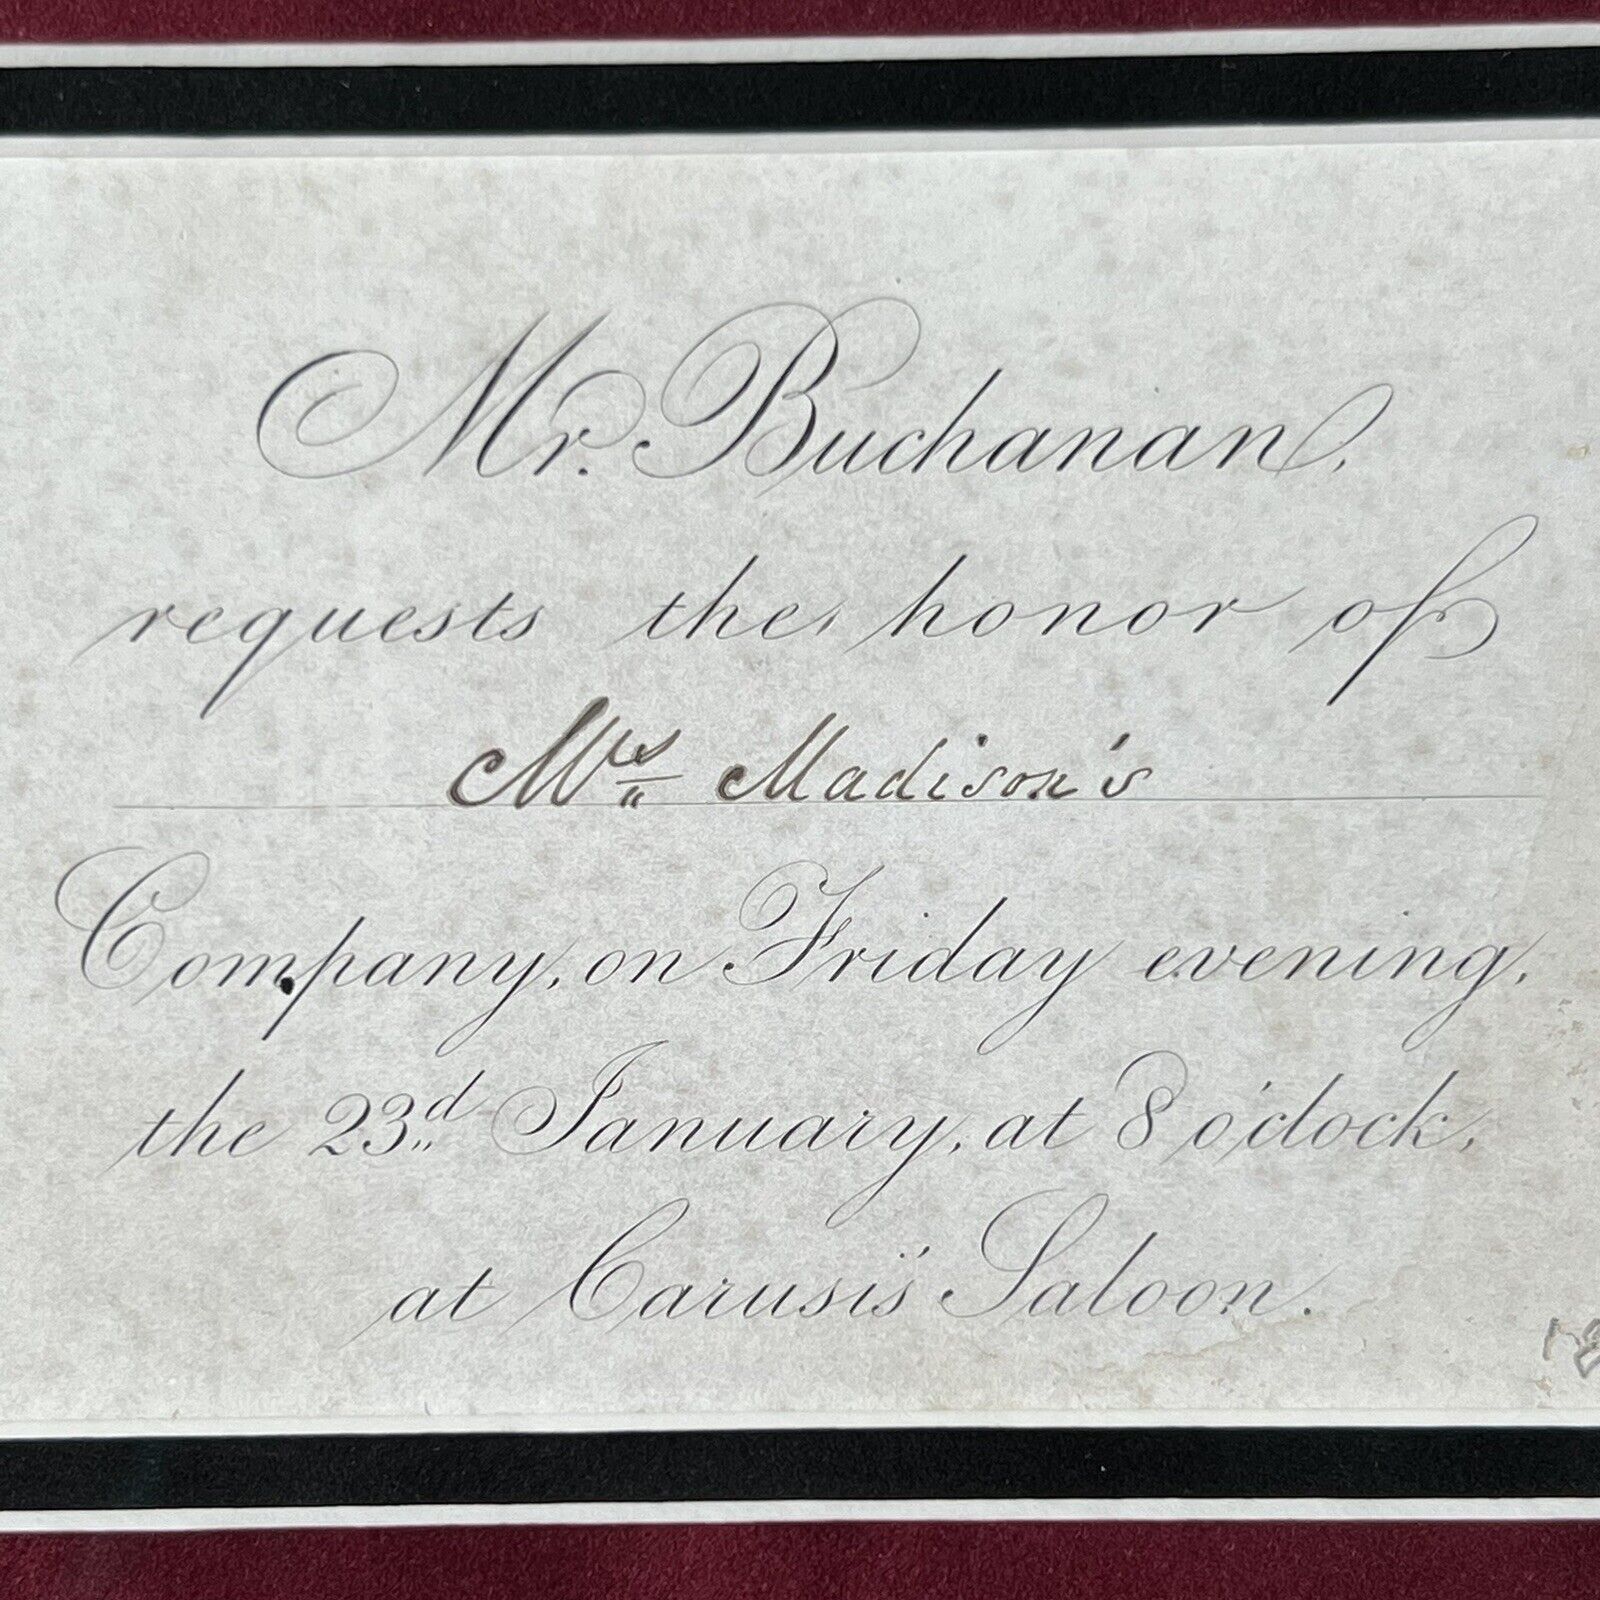 Mr. Buchanan,
requests the honor of
Mrs Madison's
Company, on Friday evening,
the 23d January, at 8 o'clock,
at Carusi's Saloon.